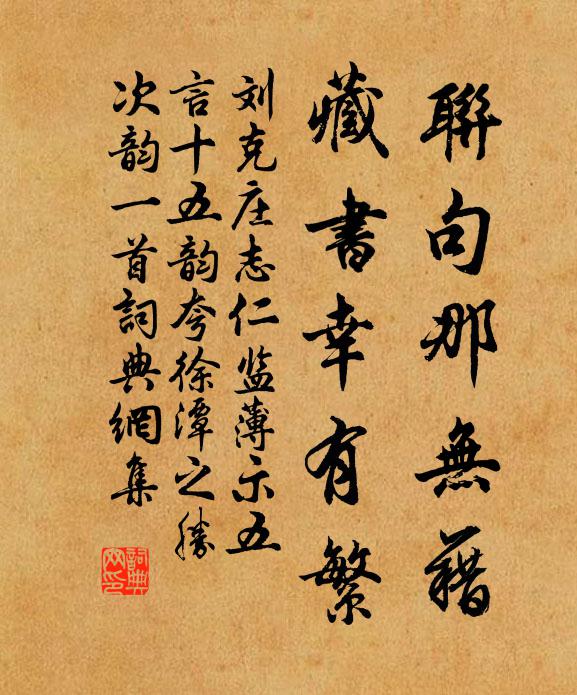 聯句那無籍
藏書幸有繁
刘克庄志仁监薄示五
言十五韵夸徐潭之勝
次韵一首詞典網集
詞典網印